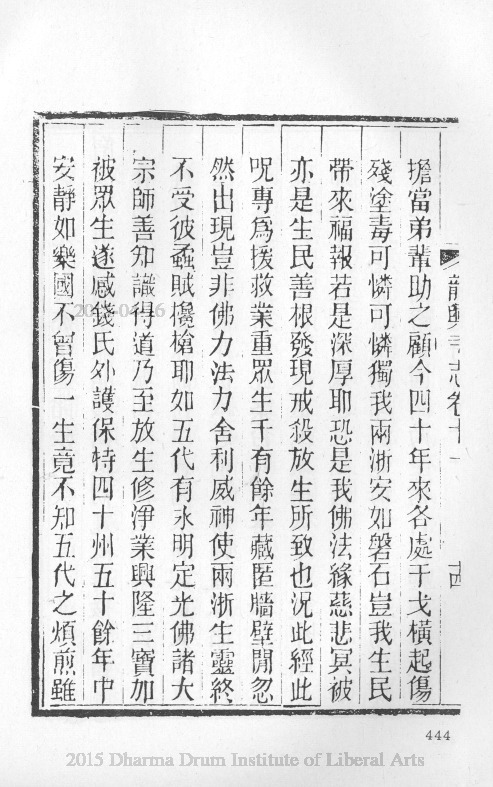 龍興寺志卷十一
十四
擔當弟輩助之顧今四十年來各處干戈橫起傷
殘塗毒可憐可憐獨我兩浙安如磐石豈我生民
帶來福報若是深厚耶恐是我佛法緣慈悲冥被
亦是生民善根發現戒殺放生所致也況此經此
呪專爲援救業重眾生千有餘年藏匿牆壁閒忽
然出現豈非佛力法力舍利威神使兩浙生靈終
不受彼蝥賊攙槍耶如五代有永明定光佛諸大
宗師善知識得道乃至放生修淨業興隆三寶加
被眾生遂感錢氏外護保特四十州五十餘年中
安靜如樂國不曾傷一生竟不知五代之煩煎雖
444
2015 Dharma Drum Institute of Liberal Arts